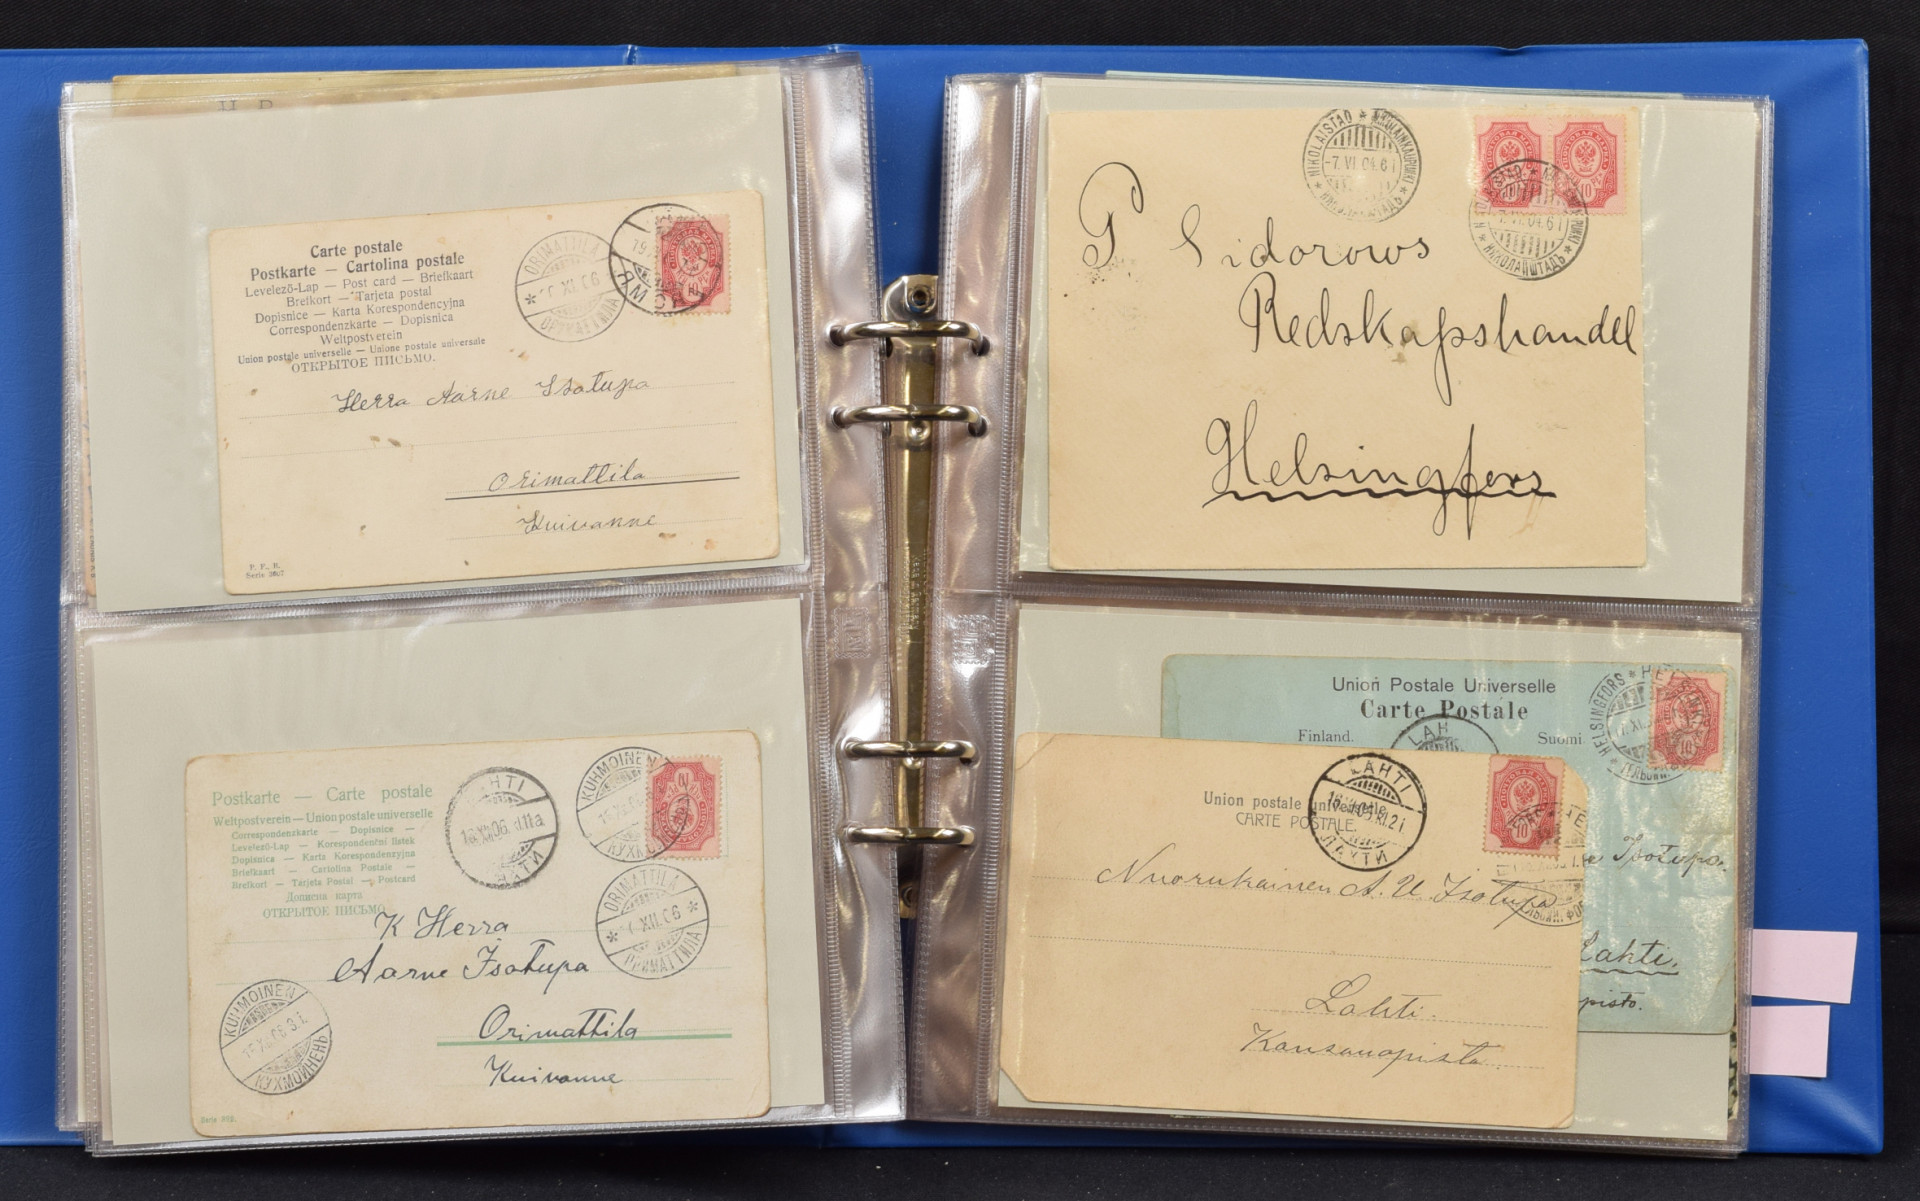 Carte postale
Postkarte — Cartolina postale
Levelező-Lap — Post card — Briefkaart
Brefkort — Tarjeta postal
Dopisnice — Karta Korespondencyjna
Correspondenzkarte — Dopisnica
Weltpostverein
Union postale universelle — Unione postale universale
ОТКРЫТОЕ ПИСЬМО.
ORIMATTILA
XI. 06
ОРИМАТТИЛА
Herra Aarne Isotupa
Orimattila
Kuivanne
P. F. B.
Serie
Postkarte — Carte postale
Weltpostverein — Union postale universelle
Correspondenzkarte — Dopisnice —
Levelező-Lap — Korespondenční listek
Dopisnica — Karta Korespondenzyjna
Briefkaart — Cartolina Postale —
Brefkort — Tarjeta Postal — Postcard
Дописна карта
ОТКРЫТОЕ ПИСЬМО
LAHTI
XII. 06. XI. 11a
ЛАХТИ
KUHMOINEN
ORIMATTILA
XII. 06
ОРИМАТТИЛА
K Herra
Aarne Isotupa
Orimattila
Kuivanne
KUHMOINEN
06 3. i.
КУХМОЙНЕНЬ
NIKOLAISTAD * NIKOLAINKAUPUNKI
-7. VI. 04. 6 i
* НИКОЛАЙШТАДЪ *
ПОЧТОВАЯ МАРКА
10
* НИКОЛАЙШТАДЪ *
P Sidorows
Redskapshandel
Helsingfors
Union Postale Universelle
Carte Postale
Finland. Suomi
HELSINGFORS * HELSINKI
10
LAH
Isotupa.
Lahti.
pisto.
Union postale universelle
CARTE POSTALE.
LAHTI
ЛАХТИ
10
Nuorukainen A. U. Isotupa
Lahti.
Kansanopisto